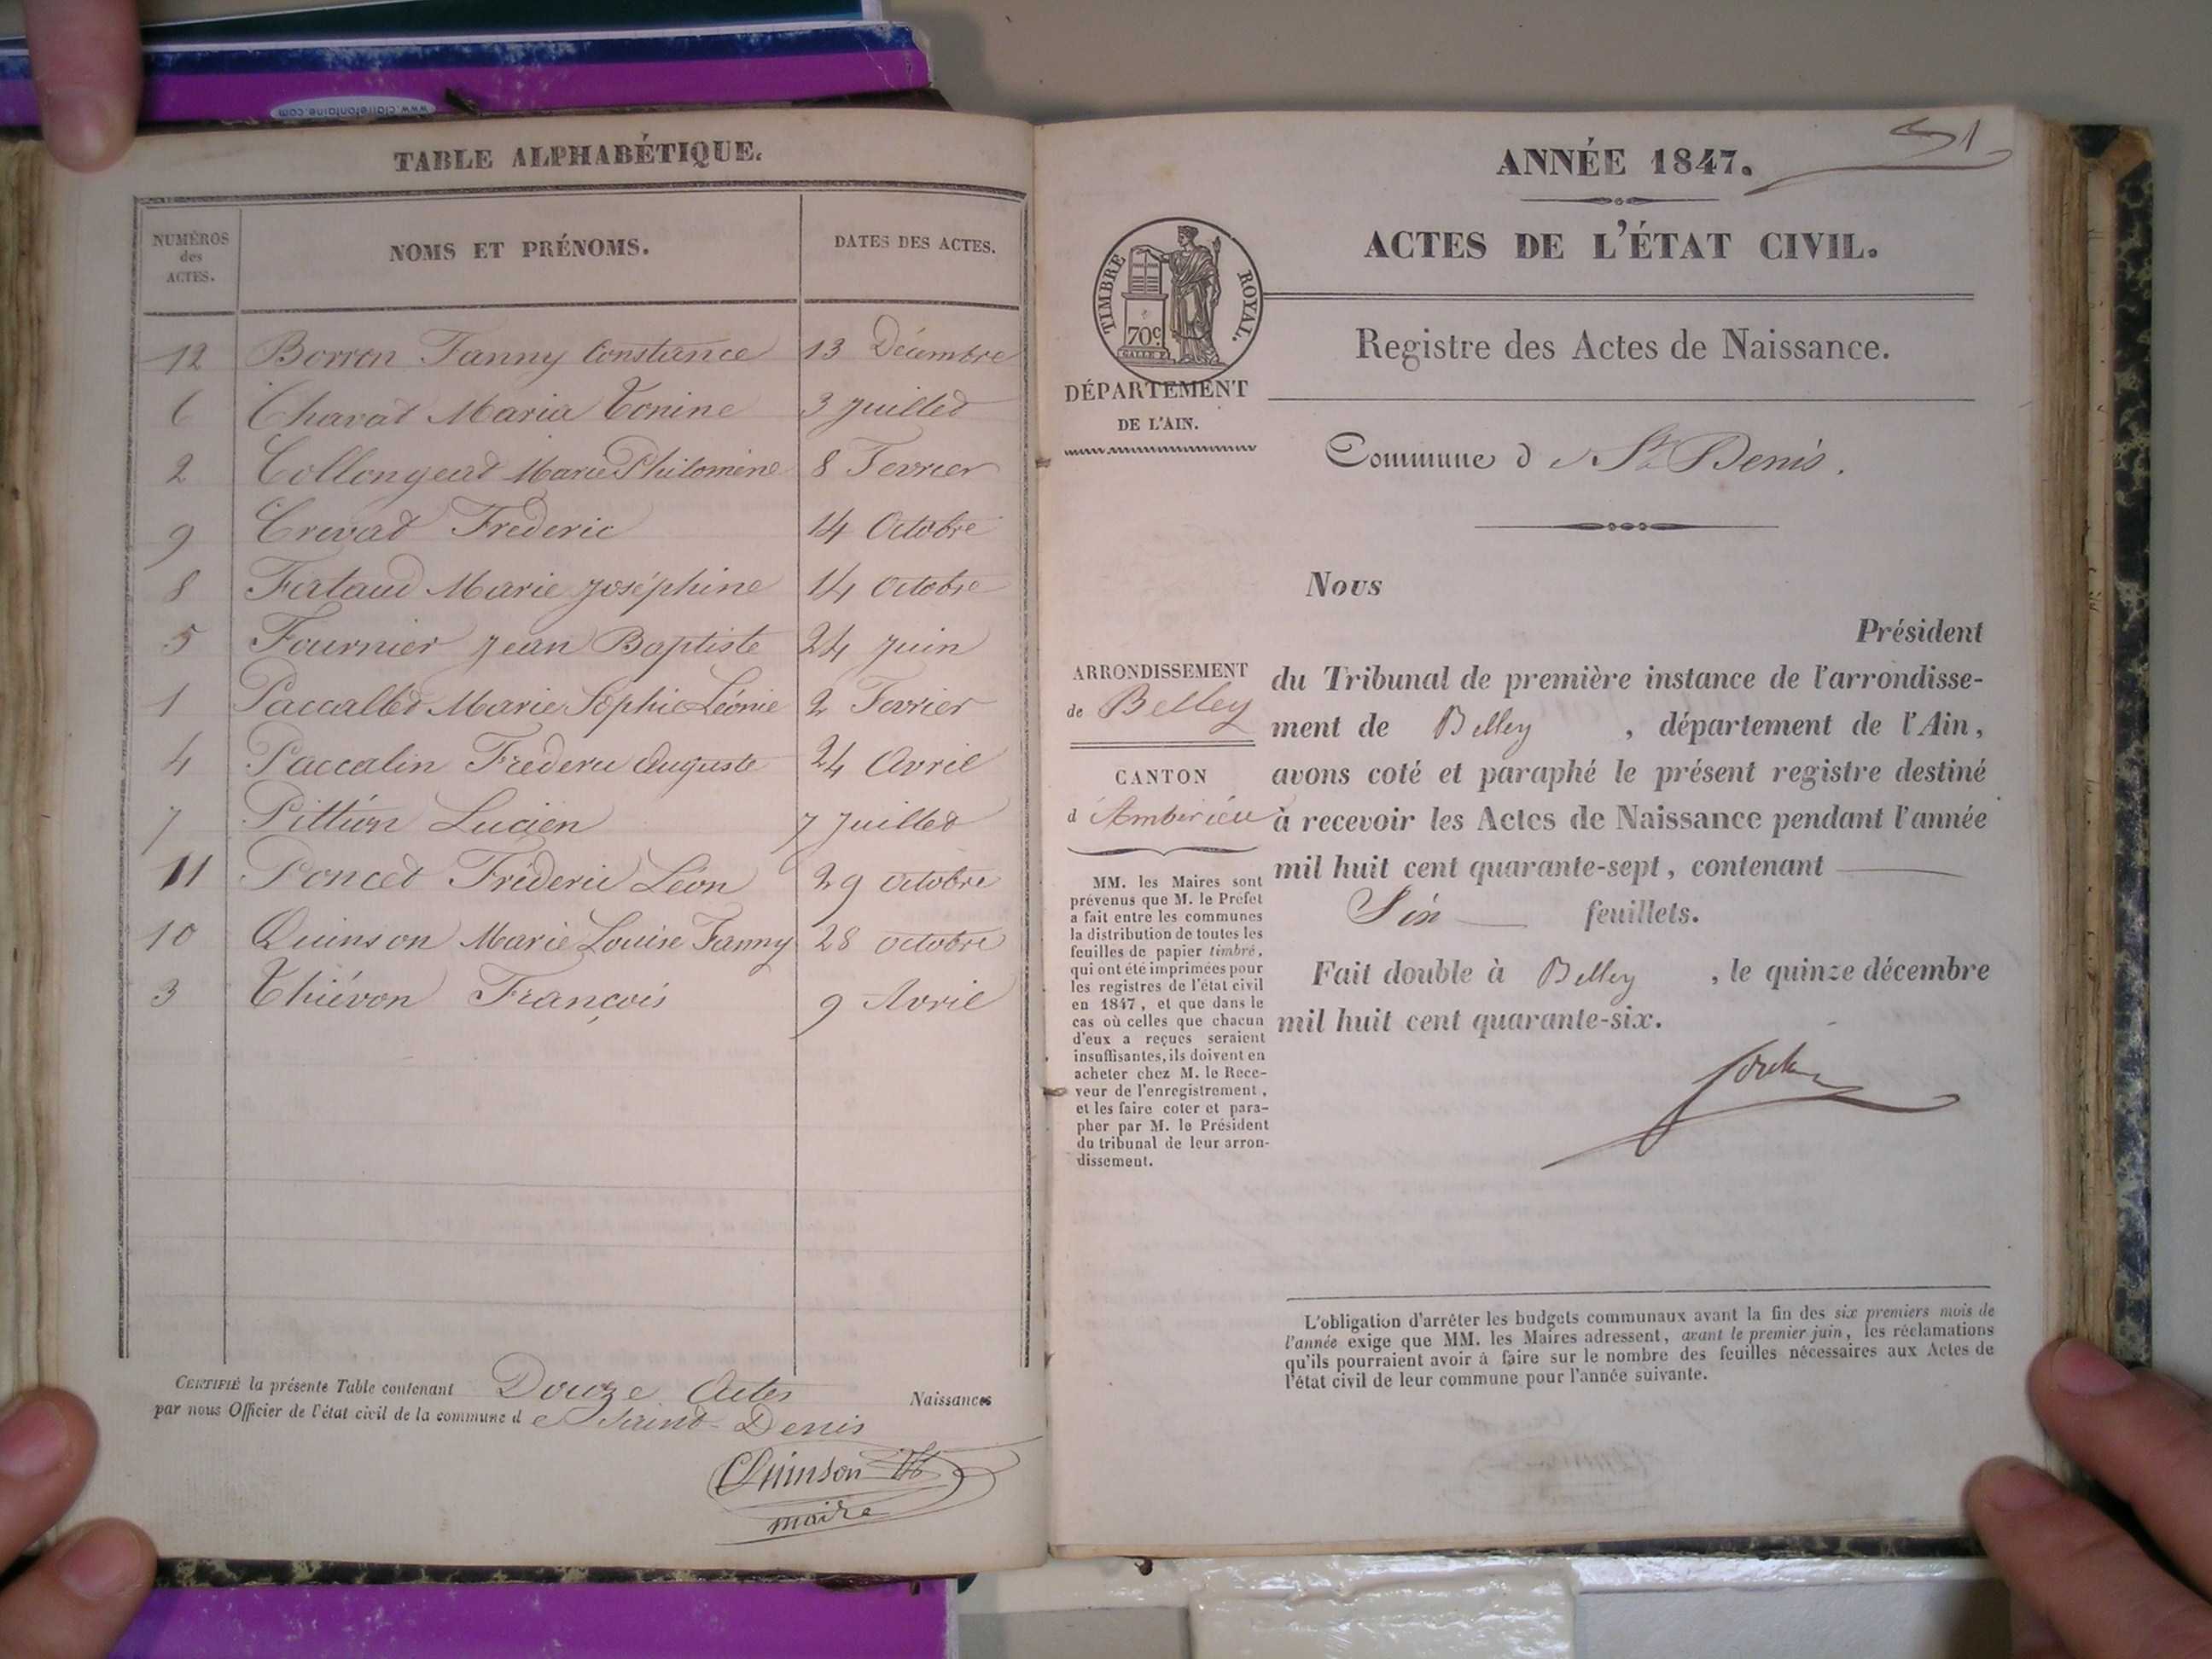 www.clairefontaine.com
TABLE ALPHABÉTIQUE.
NUMÉROS des ACTES.
NOMS ET PRÉNOMS.
DATES DES ACTES.
12 Borron Fanny Constance 13 Décembre
6 Chavat Maria Tonine 3 Juillet
2 Collongeat Marie Philomène 8 Fevrier
9 Crevat Frederic 14 Octobre
8 Fertaud Marie Joséphine 14 Octobre
5 Fournier Jean Baptiste 24 Juin
1 Paccallet Marie Sophie Léonie 2 Fevrier
4 Paccalin Frederic Auguste 24 Avril
7 Pittion Lucien 7 Juillet
11 Poncet Fréderic Léon 29 octobre
10 Quinson Marie Louise Fanny 28 octobre
3 Thiévon François 9 Avril
CERTIFIÉ la présente Table contenant Douze Actes Naissances
par nous Officier de l'état civil de la commune de Saint-Denis
Quinson
maire
51
ANNÉE 1847.
ACTES DE L'ÉTAT CIVIL.
TIMBRE ROYAL.
70c
Registre des Actes de Naissance.
DÉPARTEMENT
DE L'AIN.
Commune de St Denis.
Nous
Président
ARRONDISSEMENT
de Belley
CANTON
d'Ambérieu
du Tribunal de première instance de l'arrondisse-
ment de Belley, département de l'Ain,
avons coté et paraphé le présent registre destiné
à recevoir les Actes de Naissance pendant l'année
mil huit cent quarante-sept, contenant
Six feuillets.
Fait double à Belley, le quinze décembre
mil huit cent quarante-six.
MM. les Maires sont
prévenus que M. le Préfet
a fait entre les communes
la distribution de toutes les
feuilles de papier timbré,
qui ont été imprimées pour
les registres de l'état civil
en 1847, et que dans le
cas où celles que chacun
d'eux a reçues seraient
insuffisantes, ils doivent en
acheter chez M. le Rece-
veur de l'enregistrement,
et les faire coter et para-
pher par M. le Président
du tribunal de leur arron-
dissement.
L'obligation d'arrêter les budgets communaux avant la fin des six premiers mois de
l'année exige que MM. les Maires adressent, avant le premier juin, les réclamations
qu'ils pourraient avoir à faire sur le nombre des feuilles nécessaires aux Actes de
l'état civil de leur commune pour l'année suivante.